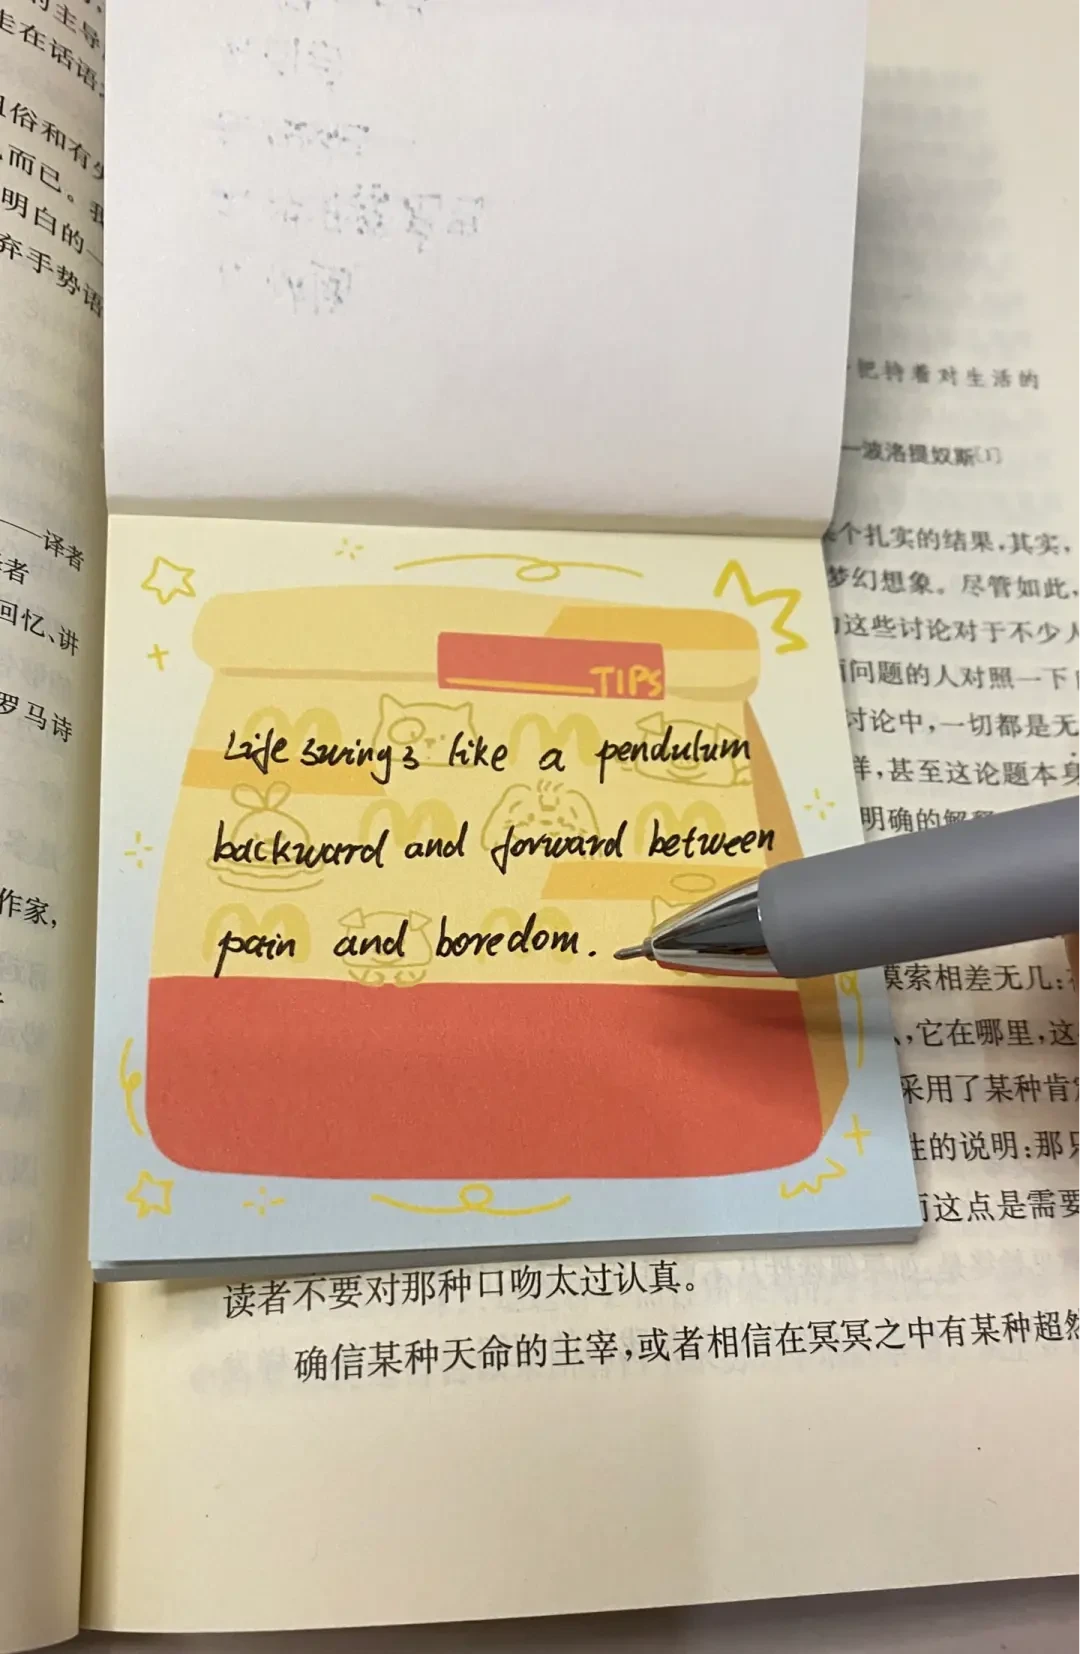 的主导
走在话语
俗和有
而已。我
明白的一
弃手势语
——译者
者
回忆、讲
罗马诗
作家,
把持着对生活的
—波洛提奴斯〔1〕
个扎实的结果,其实,
梦幻想象。尽管如此,
这些讨论对于不少人
问题的人对照一下
讨论中,一切都是无
样,甚至这论题本身
明确的解释
TIPS
Life swings like a pendulum
backward and forward between
pain and boredom.
摸索相差无几:
,它在哪里,这
采用了某种肯定
性的说明:那只
而这点是需要
读者不要对那种口吻太过认真。
确信某种天命的主宰,或者相信在冥冥之中有某种超然